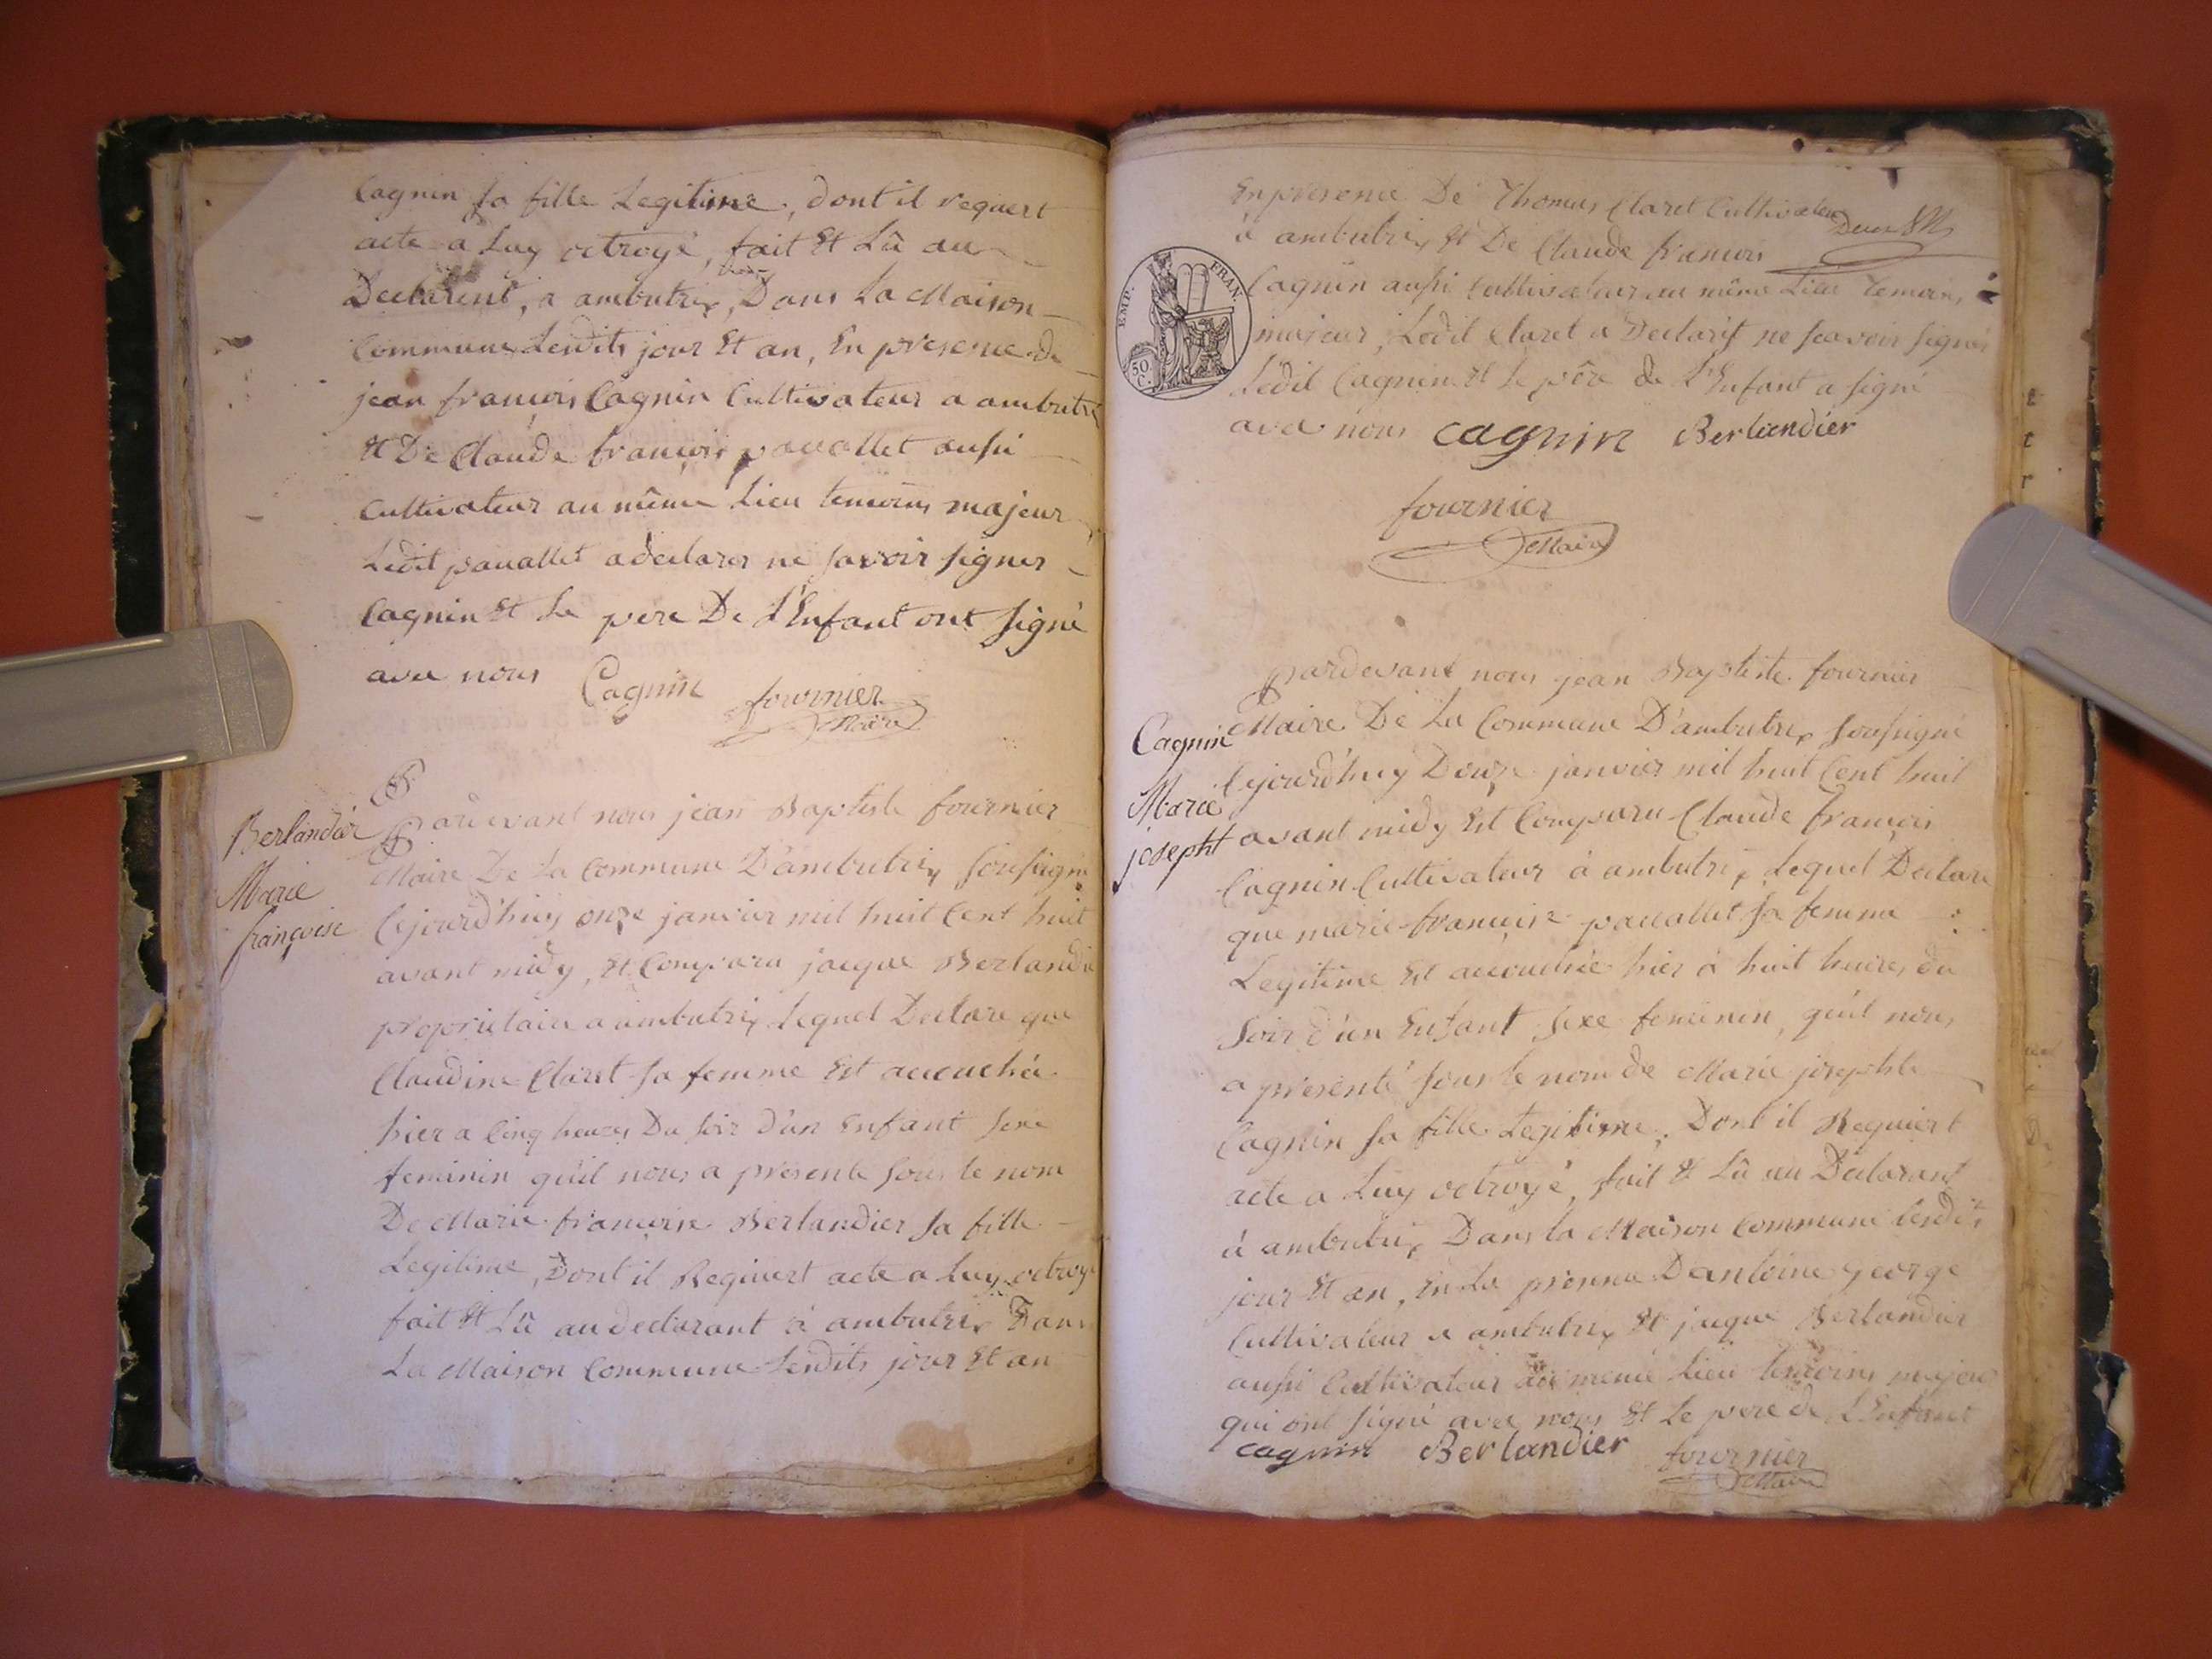 Cagnin sa fille Legitime, dont il requert
acte a Luy octroyé, fait Et Lû au
Declarent, a ambutrix, Dans La Maison
Commune Lesdits jour Et an, En presence de
jean francois Cagnin Cultivateur a ambutrix
Et De Claude francois pavallet aussi
Cultivateur au même Lieu temoins majeur
Ledit pauallet a declarer ne savoir signer
Cagnin Et Le pere De L'Enfant ont signé
avec nous Cagnin fournier
Maire
Berlandier
Marie
françoise
Pardevant nous jean Baptiste fournier
Maire De La Commune D'ambutrix soussigné
Cejourd'huy onze janvier mil huit Cent huit
avant midy, Et Comparu jacque Berlandier
proprietaire a ambutrix Lequel Declare que
Claudine Claret sa femme Est accouchée
hier a Cinq heures Du soir D'un Enfant sexe
feminin qu'il nous a presenté sous le nom
De Marie francoise Berlandier sa fille
Legitime, Dont il Requiert acte a Luy octroyé
fait Et Lû au declarant à ambutrix Dans
La Maison Commune Lesdits jour Et an
En presence De Thomas Claret Cultivateur
à ambutrix Et De Claude francois
Cagnin aussi Cultivateur au même Lieu temoins
EMP. FRAN.
50 C.
majeur, Ledit Claret a Declaré ne scavoir signer
Ledit Cagnin Et Le père de L'Enfant a signé
avec nous cagnin Berlandier
fournier
Maire
Cagnin
Marie
josepht
Pardevant nous jean Baptiste fournier
Maire De La Commune D'ambutrix soussigné
Cejourd'huy Douze janvier mil huit Cent huit
avant midy Est Comparu Claude francois
Cagnin Cultivateur à ambutrix Lequel Declare
que marie francoise pavallet sa femme
Legitime Est accouchée hier à huit heures du
soir d'un Enfant sexe feminin, qu'il nous
a presenté sous le nom de Marie josephte
Cagnin sa fille Legitime, Dont il Requiert
acte a Luy octroyé, fait Et Lû au Declarant
à ambutrix Dans la Maison Commune Lesdits
jour Et an, En La presence D'antoine george
Cultivateur a ambutrix Et jacque Berlandier
aussi Cultivateur au meme Lieu temoins majeur
qui ont signé avec nous Et Le pere de L'Enfant
cagnin Berlandier fournier
Maire